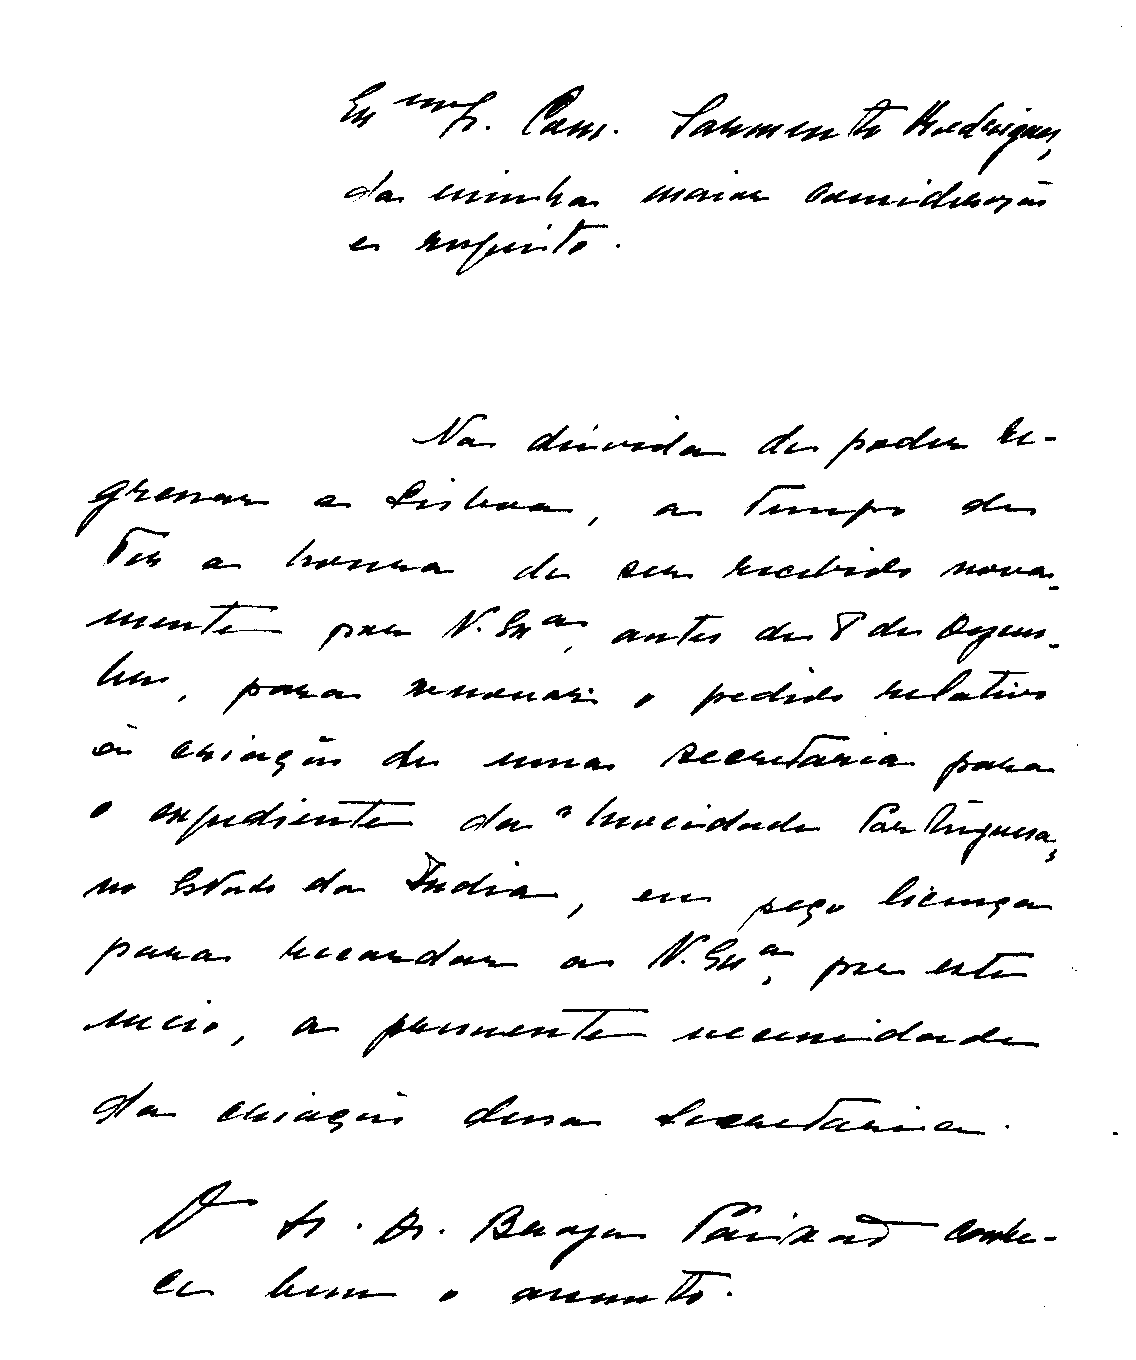 Exmo Sr. Com. Sarmento Rodrigues,
da minha maior consideração
e respeito.
Na dúvida de poder re-
gressar a Lisboa, a tempo de
ter a honra de ser recebido nova-
mente por V. Exa, antes de 8 de Dezem-
bro, para renovar o pedido relativo
à criação de uma secretaria para
o expediente da "Mocidade Portuguesa,
no Estado da Índia, eu peço licença
para recordar a V. Exa, por este
meio, a permente necessidade
da criação dessa Secretaria.
O Sr. Dr. Beraga Paixão conhe-
ce bem o assunto.